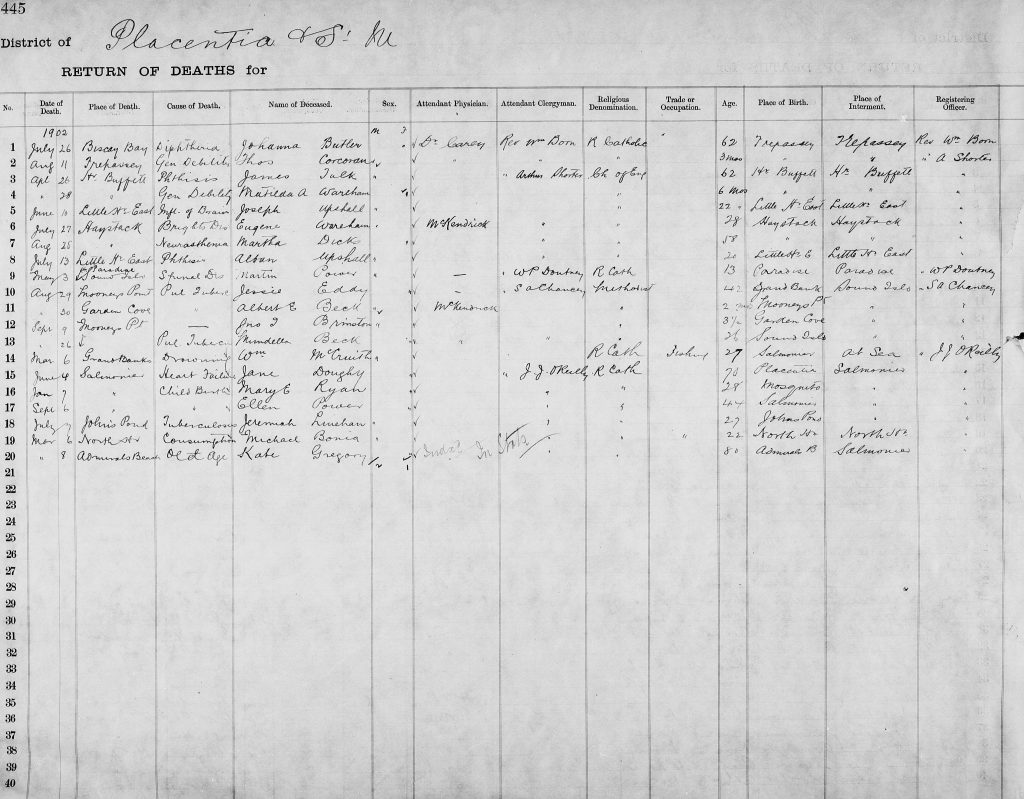 445
District of Placentia & St. M
RETURN OF DEATHS for
No. Date of Death. Place of Death. Cause of Death. Name of Deceased. Sex. Attendant Physician. Attendant Clergyman. Religious Denomination. Trade or Occupation. Age. Place of Birth. Place of Interment. Registering Officer.
1902 M
1 July 26 Biscay Bay Diphtheria Johanna Butler Dr Carey Rev Wm Born R Catholic 62 Trepassey Trepassey Rev Wm Born
2 Aug 11 Trepassey Gen Debility Thos Corcoran 3 mos " " " A Shorter
3 Apl 26 Hr Buffett Phthisis James " Arthur Shorter Ch of Eng 62 Hr Buffett Hr Buffett "
4 " 28 " Gen Debility Matilda A Wareham " " 6 mos " " "
5 June 10 Little Hr East Infl. of Brain Joseph Upshall " " 22 Little Hr East Little Hr East "
6 July 27 Haystack Brights Dis Eugene Wareham McKendrick " " 28 Haystack Haystack "
7 Aug 25 " Neurasthenia Martha Dicks " " 58 " " "
8 July 13 Little Hr East Phthisis Alban Upshall " " 20 Little Hr E Little Hr East "
9 May 3 Paradise Sound Isls Spinal Dis Martin Power — " W P Doutney R Cath 13 Paradise Paradise " W P Doutney
10 Aug 29 Mooneys Point Pul Tuberc Jessie Eddy — " S A Chancey Methodist 42 Grand Bank Sound Isls " S A Chancey
11 " 30 Garden Cove " Albert E Beck McKendrick " " 2 Mooneys Pt " "
12 Sept 9 Mooneys Pt — Jno T Brinston " " 3½ Garden Cove " "
13 " 20 " Pul Tuberc Beck " " 26 Sound Isls " "
14 Mar 6 Grand Banks Drowning Wm R Cath Fishing 27 Salmonier At Sea " J J O'Reilly
15 June 4 Salmonier Heart Failure Jane " J. J. O'Reilly R Cath 70 Placentia Salmonier "
16 Jan 7 " Child Birth Mary E Ryan " " 28 Mosquito " "
17 Sept 6 " " Ellen Power " " 44 Salmonier " "
18 July 7 Johns Pond Tuberculosis Jeremiah Linehan " " 27 Johns Pond " "
19 Mar 6 North Hr Consumption Michael Bonia " " " 22 North Hr North Hr "
20 " 8 Admirals Beach Old Age Kate Gregory In Stats " " 80 Admirals B Salmonier "
21
22
23
24
25
26
27
28
29
30
31
32
33
34
35
36
37
38
39
40